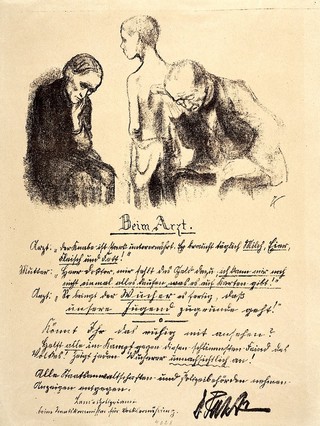 Beim Arzt.
Arzt: „Der Knabe ist stark unterernährt. Er braucht täglich Milch, Eier,
Fleisch und Fett!“
Mutter: „Herr Doktor, mir fehlt das Geld dazu, ich kann mir noch
nicht einmal alles kaufen was es auf Karten gibt!“
Arzt: „So bringt der Wucher es fertig, daß
unsere Jugend zugrunde geht!“
Könnt Ihr das ruhig mit ansehen?
Helft alle im Kampf gegen diesen schlimmsten Feind des
Volkes! Zeigt jeden Wucherer unnachsichtlich an!
Alle Staatsanwaltschaften und Polizeibehörden nehmen
Anzeigen entgegen.
Landespolizeiamt
beim Staatskommissar für Volksernährung.